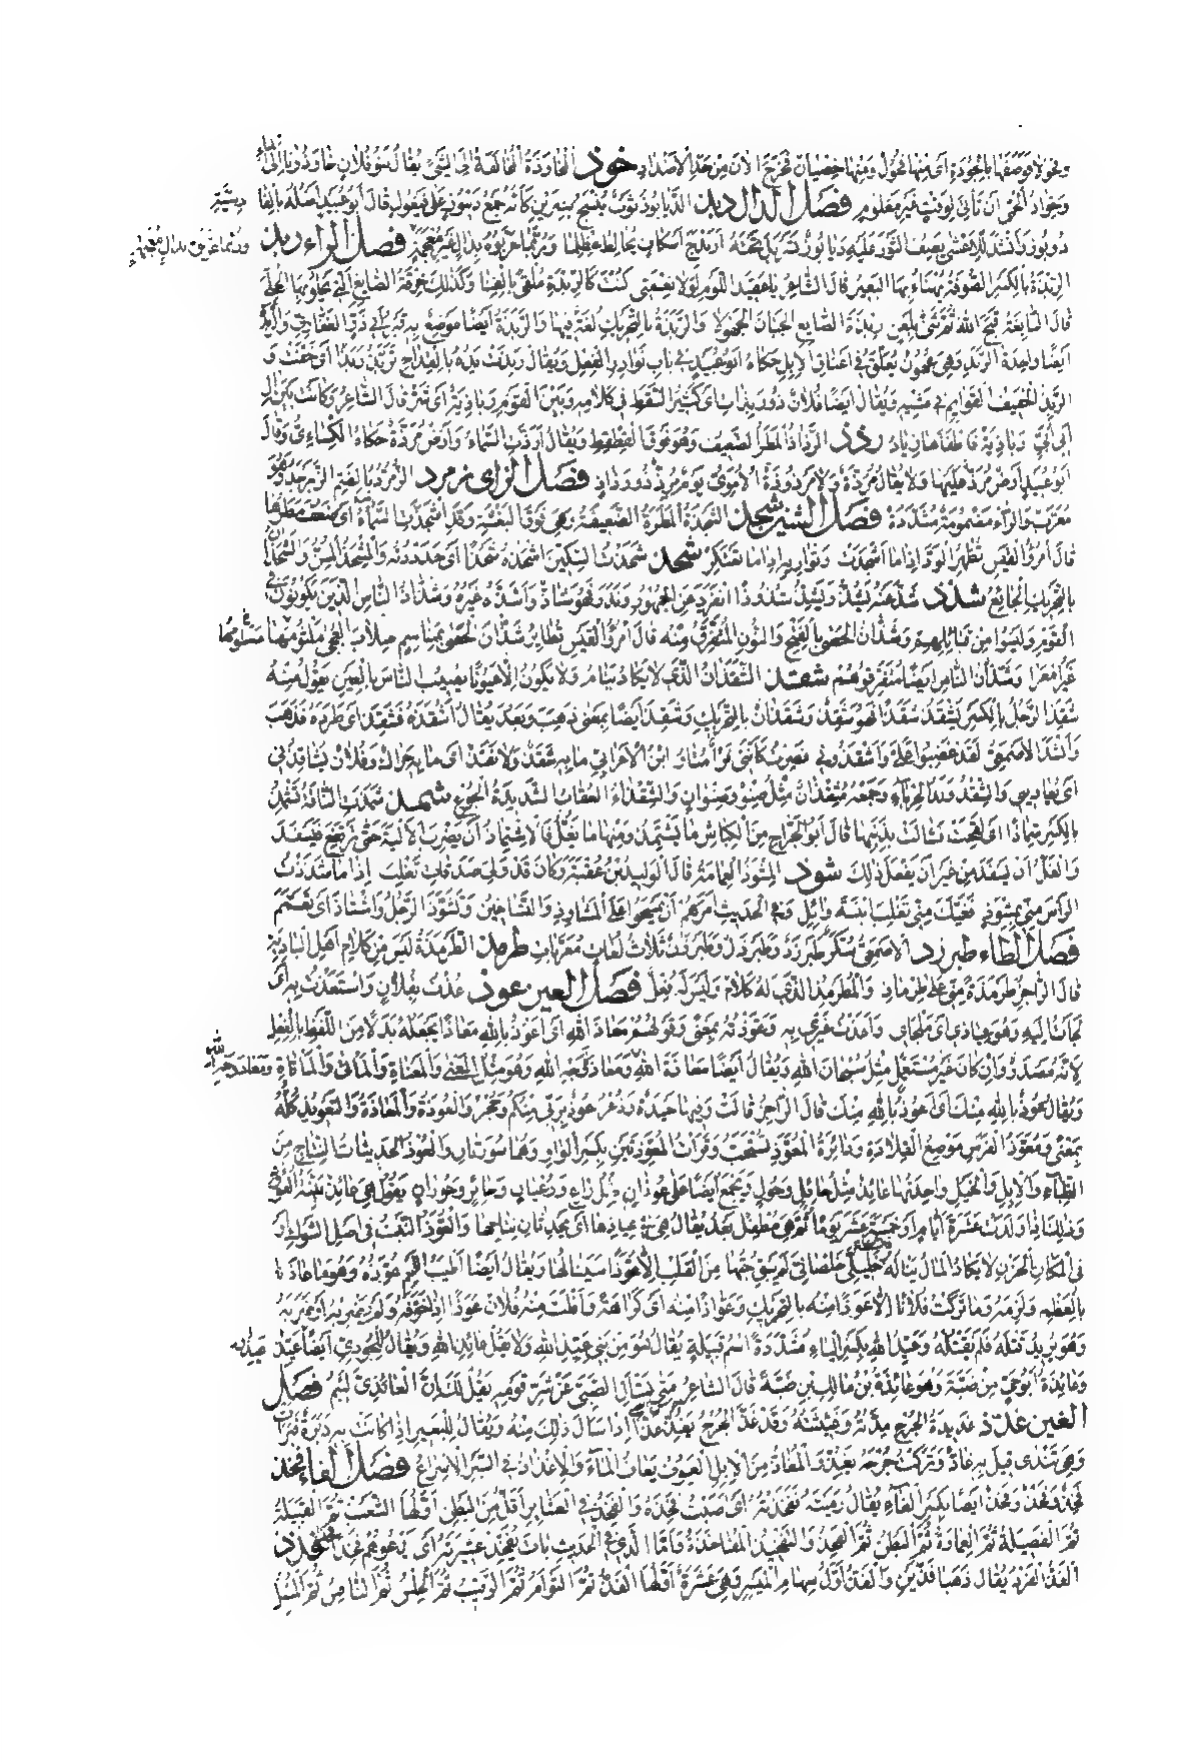 ونحولا فوصفها بالجودة اى منها فحول ومنها خصيان فخرج الان من حد الاضداد خوذ المخاوذة المخالفة الى الشئ يقال بنو فلان خاوذونا الى الماء
وخواذ الحمى ان تأتى لوقت غير معلوم فصل الدال ديذ الديابوذ ثوب ينسج بنيرين كانه جمع ديبوذ على فيعول قال ابو عبيد اصله بالفارسية
دوبوذ وانشد للاعشى يصف الثور عليه ديابوذ تسربل تحته ارندج اسكاف يخالط عظلما وربما عربوه بدال غير معجمة فصل الراء ربذ
الربذة بالكسر الصوفة يهنأ بها البعير قال الشاعر يا عقيد اللوم لولا نعمتى كنت كالربذة ملقى بالفنا وكذلك خرقة الصايغ التى يجلو بها الحلى
قال النابغة قبح الله ثم ثنى بلعن ربذة الصايغ الجبان الجهولا والربذة بالتحريك لغة فيها والربذة ايضا موضع به قبر ابى ذر الغفارى والربذة
ايضا واحدة الربذ وهى عهون تعلق فى اعناق الابل حكاه ابو عبيد فى باب نوادر الفعل ويقال ربذت يده بالقداح تربذ ربذا اى خفت و
الربذ الخفيف القوايم فى مشيه ويقال ايضا فلان ذو ربذات اى كثير السقط فى كلامه وبين القوم رباذية اى شر قال الشاعر وكانت بين ال
ابى ابى رباذية فاطفاها زياد رذذ الرذاذ المطر الضعيف وهو فوق القطقط ويقال ارذت السماء وارض مرذة حكاه الكسائى وقال
ابو عبيد ارض مرذ عليها ولا يقال مرذة ولا مرذوذة الاموى يوم مرذ ذو رذاذ فصل الزاى زمرذ الزمرذ بالضم الزبرجد وهو
معرب والراء مضمومة مشددة فصل الشين شجذ الشجذة المطرة الضعيفة وهى فوق البغشة وقد اشجذت السماء اى ضعف مطرها
قال امرؤ القيس تظهر الود اذا ما اشجذت وتواريه اذا ما تعتكر شحذ شحذت السكين اشحذه شحذا اى حددته والمشحذ المسن والشحذان
بالتحريك الجائع شذذ شذ عنه يشذ ويشذ شذوذا انفرد عن الجمهور وندر فهو شاذ واشذه غيره وشذاذ الناس الذين يكونون فى
القوم وليسوا من قبائلهم وشذان الحصى بالفتح والنون المتفرق منه قال امرؤ القيس تطاير شذان الحصى بمناسم صلاب العجى ملثومها
غير امعرا وشذان الناس ايضا متفرقوهم شقذ الشقذان الذى لا يكاد ينام ولا يكون الا عيونا يصيب الناس بالعين يقول منه
شقذ الرجل بالكسر يشقذ شقذا فهو شقذ وشقذان بالتحريك وشقذ ايضا بمعنى ذهب وبعد يقال اشقذه فشقذ اى طرده فذهب
وانشد الاصمعى لقد غضبوا على واشقذونى فصرت كاننى فرأ متار ابن الاعرابى ما به شقذ ولا نقذ اى ما به حراك وفلان يشاقذنى
اى يعادينى والشقذ ولد الحرباء وجمعه شقذان مثل صنو وصنوان والشقذاء العقاب الشديدة الجوع شمذ شمذت الناقة تشمذ
بالكسر شماذا اى لقحت فشالت بذنبها قال ابو الجراح من الكباش ما يشتمذ ومنها ما يغل فالاشتماذ ان يضرب الالية حتى ترتفع فيسفد
والغل ان يسفد من غير ان يفعل ذلك شوذ المشوذ العمامة قال الوليد بن عقبة وكان قد ولى صدقات تغلب اذا ما شددت
الراس منى بمشوذ فغيك منى تغلب ابنة وائل وفى الحديث امرهم ان يمسحوا على المشاوذ والتساخين وتشوذ الرجل واشتاذ اى تعمم
فصل الطاء طبرزد الاصمعى سكر طبرزذ وطبرزل وطبرزن ثلاث لغات معربات طرمذ الطرمذة ليس من كلام اهل البادية
قال الراجز طرمذة منى على طرماذ والمطرمذ الذى له كلام وليس له فعل فصل العين عوذ عذت بفلان واستعذت به اى
لجأت اليه وهو عياذى اى ملجاى واعذت غيرى به وعوذته بمعنى وقولهم معاذ الله اى اعوذ بالله معاذا يجعله بدلا من اللفظ بالفعل
لانه مصدر وان كان غير مستعمل مثل سبحان الله ويقال ايضا معاذة الله ومعاذ وجه الله وهو مثل المعنى والمعناة والمأتى والمأتاة ومعاذة وجه الله
ويقال عوذ بالله منك اى اعوذ بالله منك قال الراجز قالت وفيها حيدة وذعر عوذ بربى منكم وحجر والعوذة والمعاذة والتعويذ كله
بمعنى ومعوذ الفرس موضع القلادة ودائرة المعوذ تستحب وقرأت المعوذتين بكسر الواو وهما سورتان والعوذ الحديثات النتاج من
الظباء والابل والخيل واحدتها عائذ مثل حائل وحول ويجمع ايضا على عوذان مثل راع ورعيان وحائر وحوران يقول هى عائذ بينة العوذ
وذلك اذا ولدت عشرة ايام او خمسة عشر يوما ثم هى مطفل بعد يقال هى فى عياذها اى بحدثان نتاجها والعوذ النبت فى اصل الشوك او
فى المكان الحزن لا يكاد المال يناله خليلى خلصانى لم يبق حبها من القلب الا عوذا سينالها ويقال ايضا اطيب اللحم عوذه وهو ما عاذ
بالعظم ولزمه وما تركت فلانا الا عوذا منه بالتحريك وعواذا منه اى كراهة وافلت منه فلان عوذا اذا خوفه ولم يضربه او ضربه
وهو يريد قتله فلم يقتله وعيذ الله بكسر الياء مشددة اسم قبيلة يقال هو من بنى عيذ الله ولا يقل عائذ الله ويقال للجودى ايضا عيذ
وعايذة ابو حى من ضبة وهو عائذة بن مالك بن ضبة قال الشاعر متى تسأل الضبى عن شر قومه يقل لك ان العائذى لئيم فصل
الغين غذذ غذيذة الجرح مدته وغثيثته وقد غذ الجرح يغذ غذا اذا سال ذلك منه ويقال للبعير اذا كانت به دبرة فبرأت
وهى تندى قيل به غاذ وتركت جرحه يغذ والمغاذ من الابل العيوف يعاف الماء والاغذاذ فى السير الاسراع فصل الفاء فخذ
فخذ وفخذ وفخذ ايضا بكسر الفاء يقال رميته ففخذته اى اصبت فخذه والفخذ فى العشاير اقل من البطن اولها الشعب ثم القبيلة
ثم الفصيلة ثم العمارة ثم البطن ثم الفخذ والتفخيذ المفاخذة فاما الذى فى الحديث بات يفخذ عشيرته اى يدعوهم فخذا فخذا فذذ
الفذ الفرد يقال ذهبا فذين والفذ اول سهام الميسر وهى عشرة اولها الفذ ثم التوأم ثم الرقيب ثم الحلس ثم النافس ثم المسبل